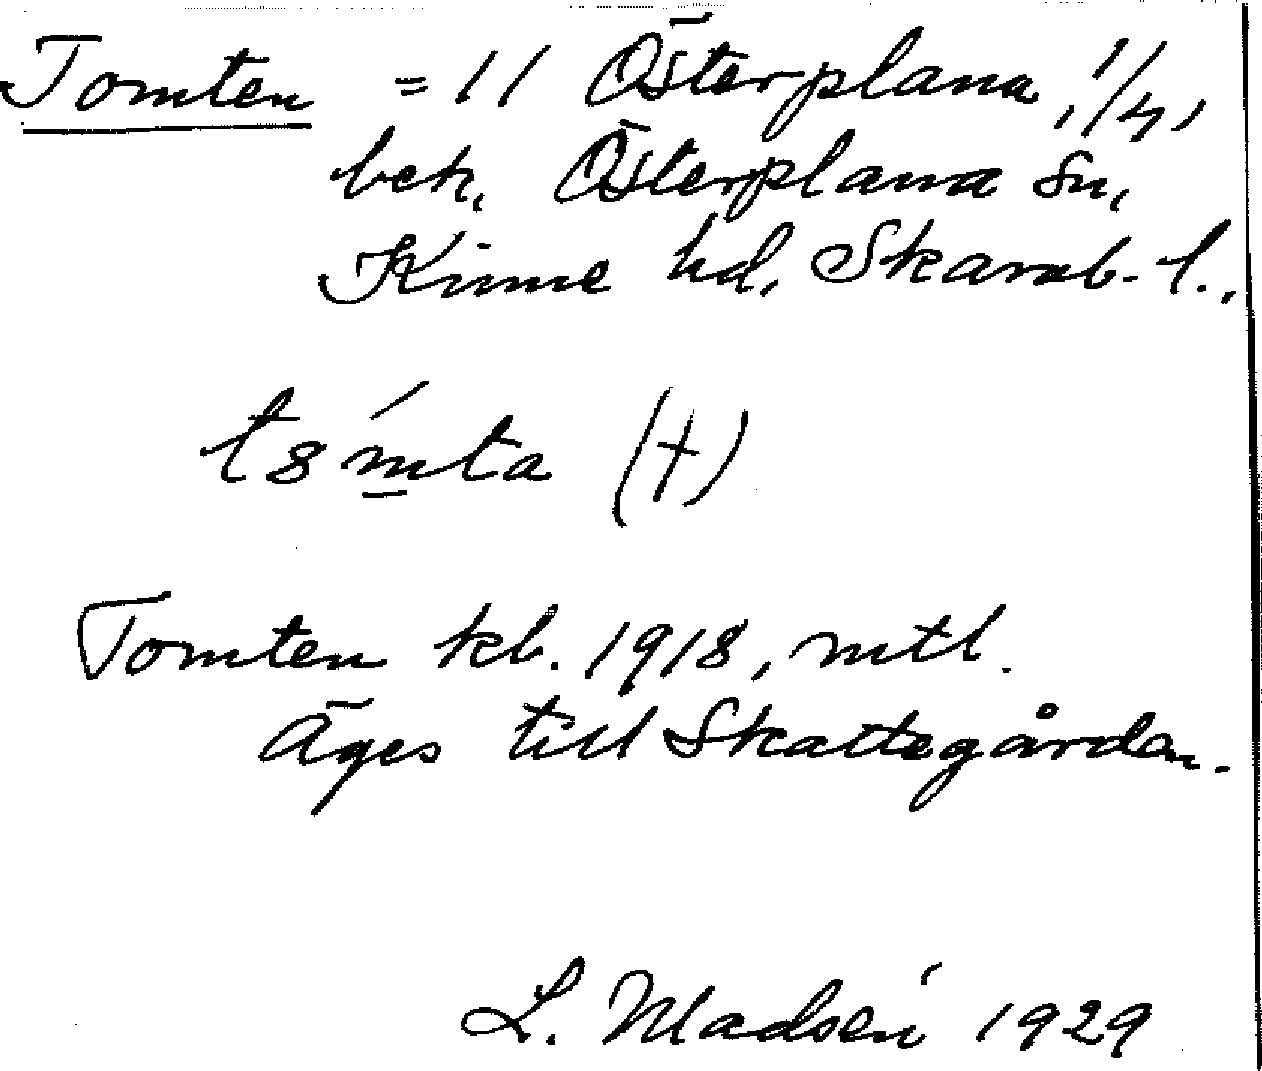 Tomten = 11 Österplana, 1/4,
beh. Österplana sn,
Kinne hd, Skarab. l.,
t8́m̲ta (+)
Tomten kb. 1918, mtl.
Äges till Skattegården.
L. Madsén 1929